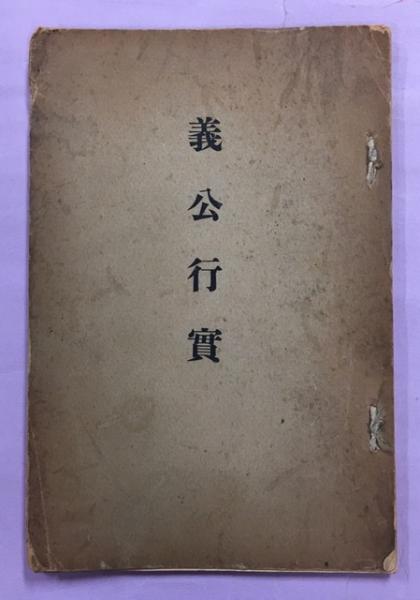 義公行實